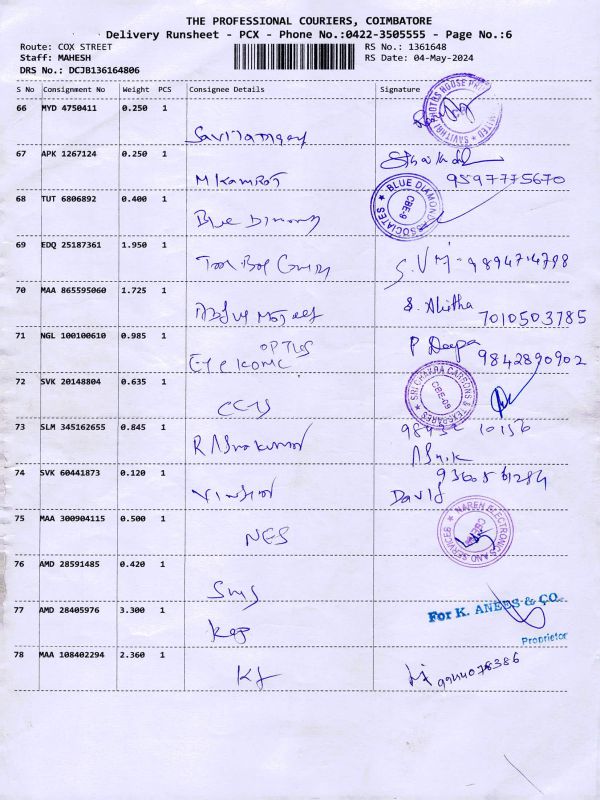 THE PROFESSIONAL COURIERS, COIMBATORE
Delivery Runsheet - PCX - Phone No.:0422-3505555 - Page No.:6
Route: COX STREET
Staff: MAHESH
DRS No.: DCJB136164806
RS No.: 1361648
RS Date: 04-May-2024
S No Consignment No Weight PCS Consignee Details Signature
66 MYD 4750411 0.250 1
SAVITHRI PHOTOS HOUSE PRIVATE LIMITED
67 APK 1267124 0.250 1 M Kamraj
9597775670
68 TUT 6806892 0.400 1 Blue Dimond
BLUE DIAMOND ASSOCIATES CBE-9
69 EDQ 25187361 1.950 1 S.VM - 9894714798
70 MAA 865595060 1.725 1 S. Akitha
7010503785
71 NGL 100100610 0.985 1 P Deepa
OPTIcs 9842890902
72 SVK 20148804 0.635 1
SRI CHAKRA CARBONS & TEXSPARES CBE-09
73 SLM 345162655 0.845 1 R Ashokumar 98432 10156
Ashik
74 SVK 60441873 0.120 1 9360561284
David
75 MAA 300904115 0.500 1 NES
NAREN ELECTRONICS AND SERVICES CBE
76 AMD 28591485 0.420 1 SMS
77 AMD 28405976 3.300 1 Kap
For K. ANEES & CO.
Proprietor
78 MAA 108402294 2.360 1 9944078386